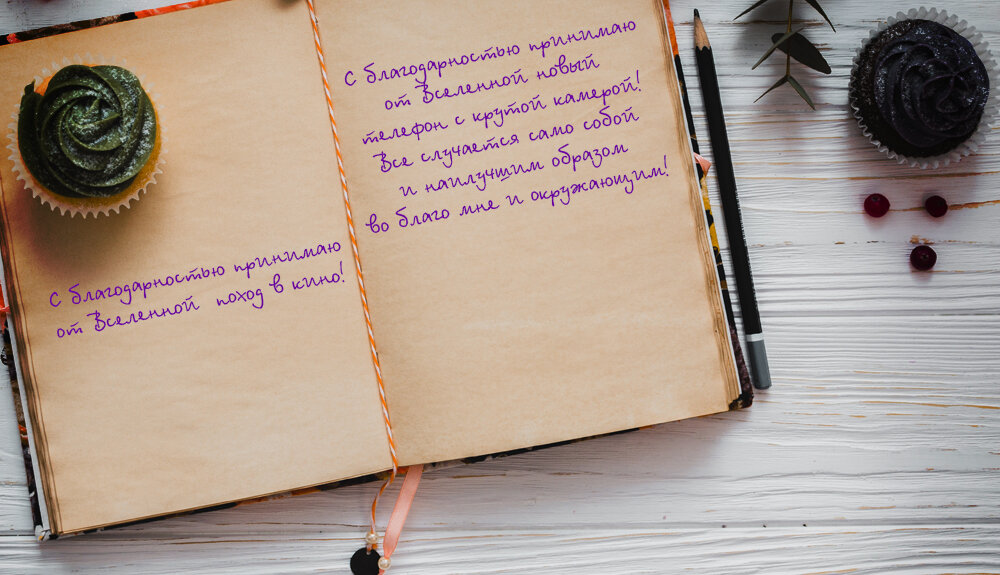 С благодарностью принимаю
от Вселенной поход в кино!
С благодарностью принимаю
от Вселенной новый
телефон с крутой камерой!
Все случается само собой
и наилучшим образом
во благо мне и окружающим!